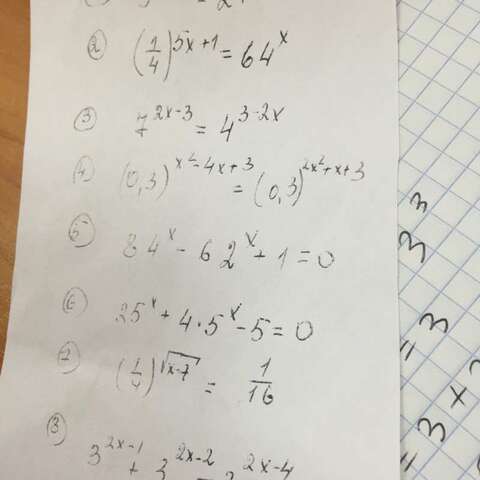 ② (1/4)^(5x+1) = 64^x
③ 7^(2x-3) = 4^(3-2x)
④ (0,3)^(x²-4x+3) = (0,3)^(2x²+x+3)
⑤ 8 4^x - 6 2^x + 1 = 0
⑥ 25^x + 4·5^x - 5 = 0
⑦ √(x-7) = 1/16
⑧ 3^(2x-1) + 3^(2x-2) 2x-4
3³
= 3
= 3